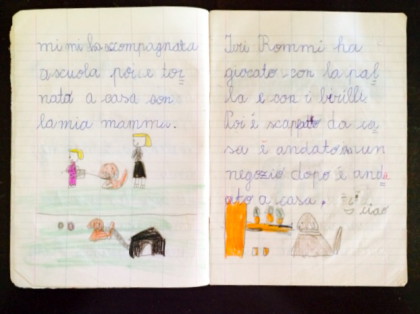 mi mi ha accompagnata
a scuola poi è tor
nata a casa con
la mia mamma.
Ieri Rommi ha
giocato con la pal
la e con i birilli.
Poi è scappato da ca
sa è andato a un
negozio dopo è and
ato a casa.
ciao